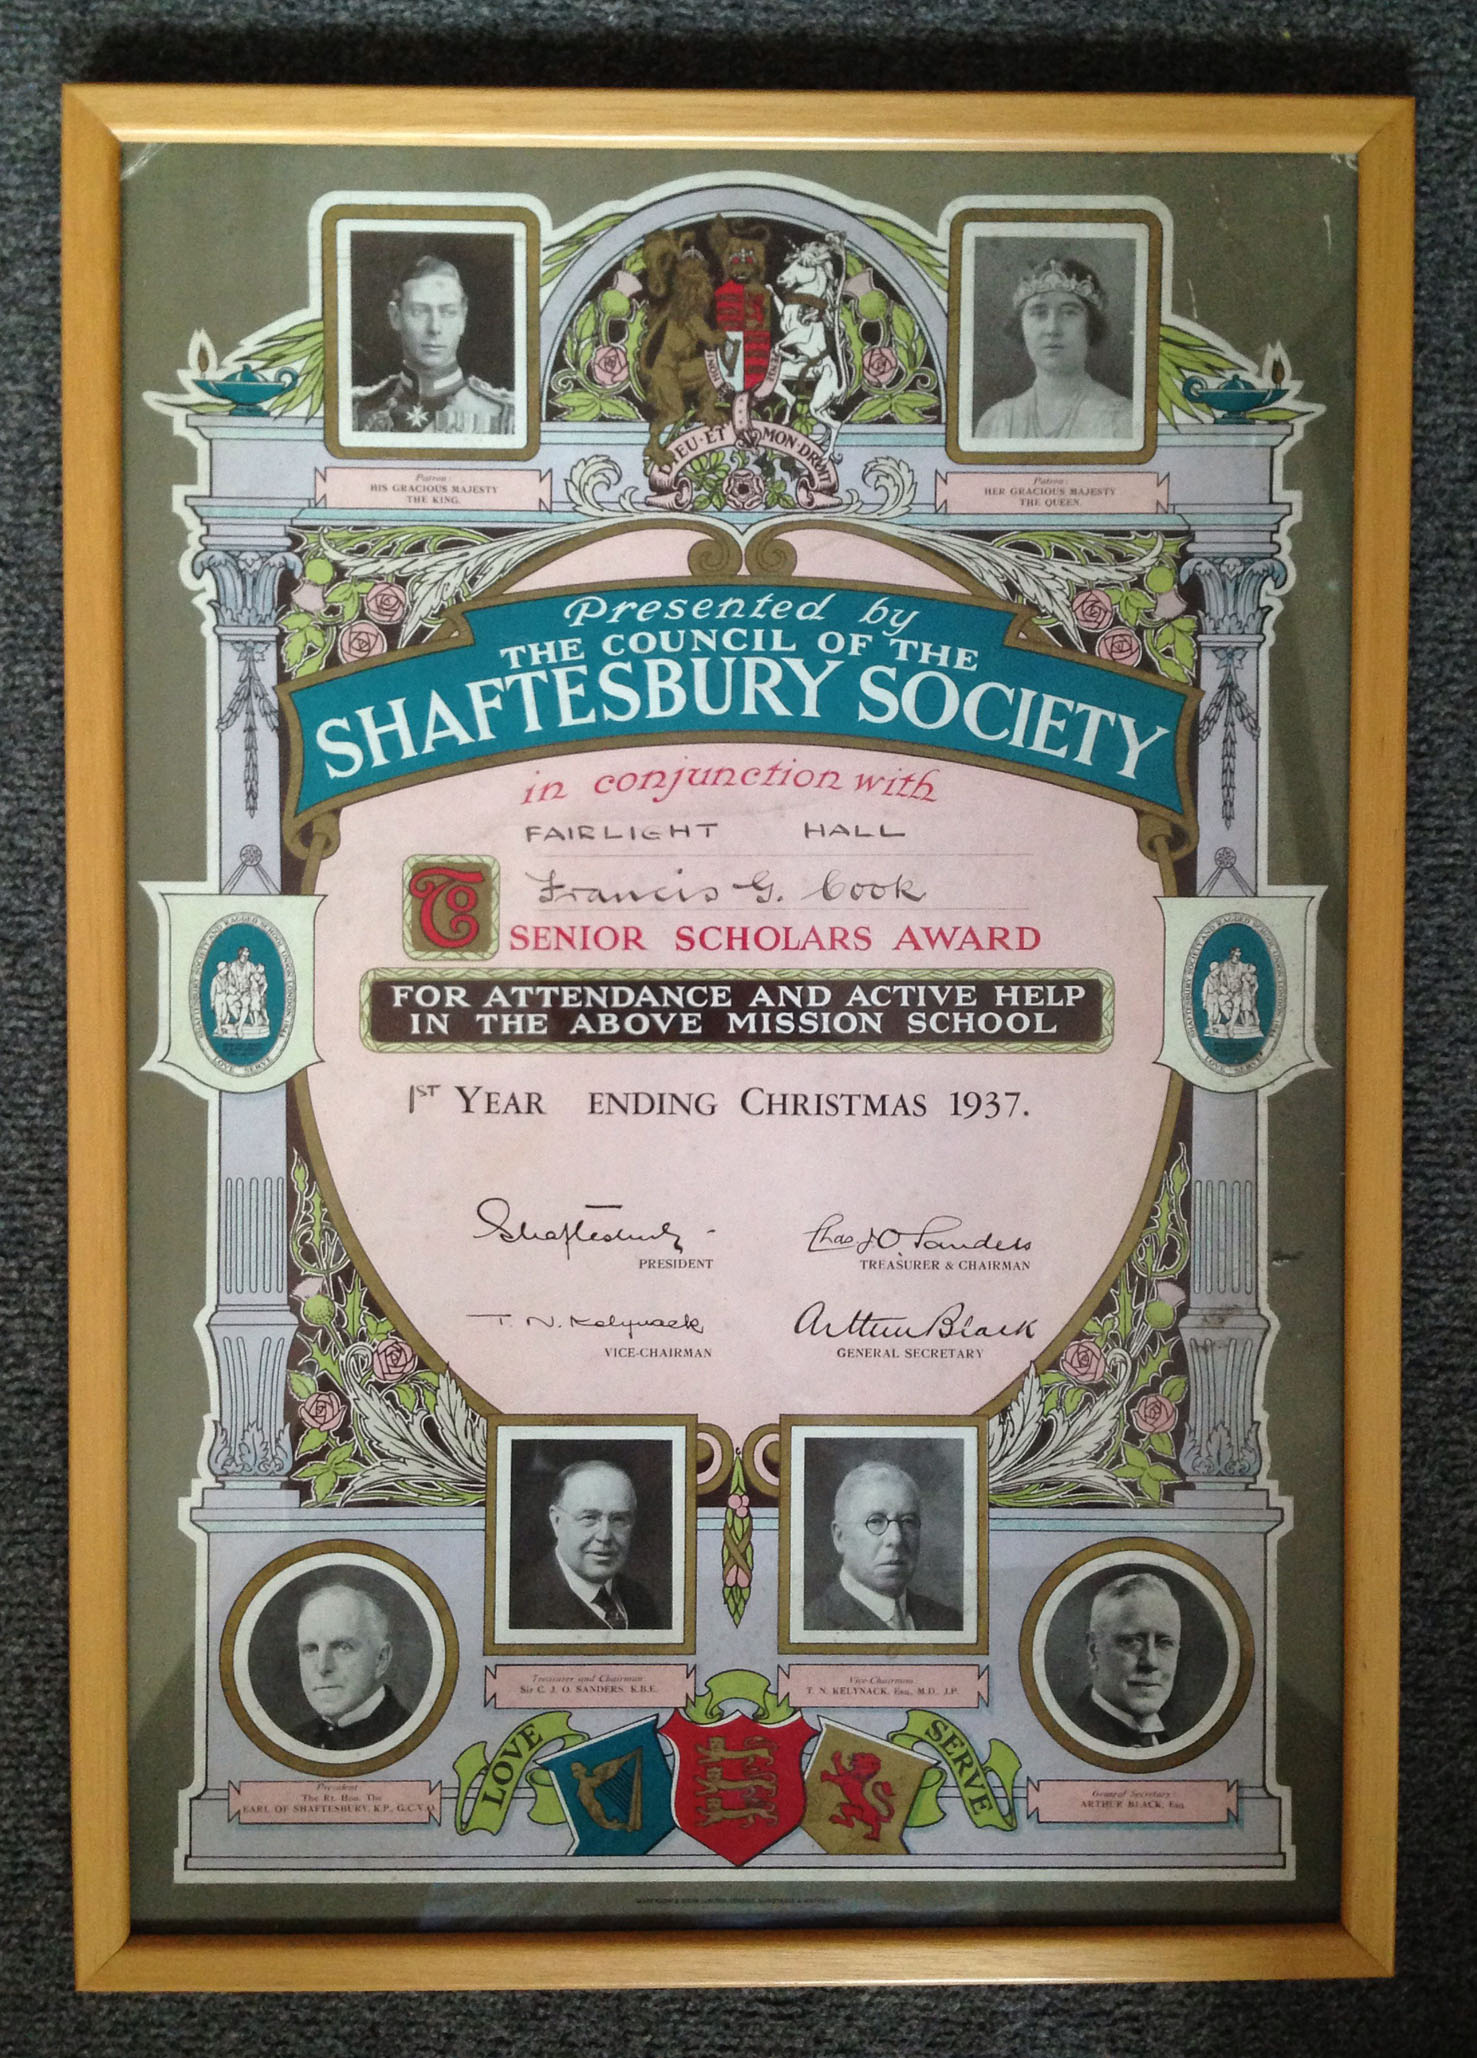 HONI
PENSE
DIEU·ET MON·DROIT
Patron:
HIS GRACIOUS MAJESTY
THE KING.
Patron:
HER GRACIOUS MAJESTY
THE QUEEN.
Presented by
THE COUNCIL OF THE
SHAFTESBURY SOCIETY
in conjunction with
FAIRLIGHT HALL
To Francis G. Cook
SENIOR SCHOLARS AWARD
FOR ATTENDANCE AND ACTIVE HELP
IN THE ABOVE MISSION SCHOOL
SHAFTESBURY SOCIETY AND RAGGED SCHOOL UNION LONDON 1844
LOVE SERVE
SHAFTESBURY SOCIETY AND RAGGED SCHOOL UNION LONDON 1844
LOVE SERVE
1ST YEAR ENDING CHRISTMAS 1937.
Shaftesbury
PRESIDENT
Chas J O Sanders
TREASURER & CHAIRMAN
T. N. Kelynack
VICE-CHAIRMAN
Arthur Black
GENERAL SECRETARY
Treasurer and Chairman
Sir C. J. O. SANDERS, K.B.E.
Vice-Chairman
T. N. KELYNACK, Esq., M.D., J.P.
President:
The Rt. Hon. The
EARL OF SHAFTESBURY, K.P., G.C.V.O.
LOVE
SERVE
General Secretary:
ARTHUR BLACK, Esq.